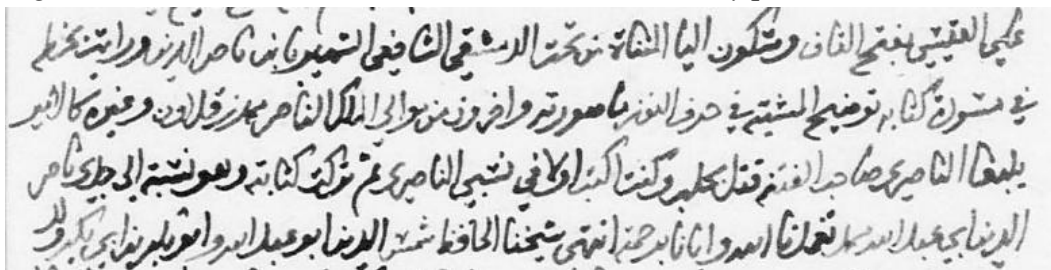 على القيسي بفتح القاف وسكون اليا المثناة من تحت الدمشقي الشافعي الشهير بابن ناصر الدين ورايت بخطه
في مسودة كتابه توضيح المشتبه في حرف النون ما صورته واخرون من موالي الملك الناصر محمد بن قلاون وغيره كالامير
يلبغا الناصري صاحب الفتنة قتل بحلب وكنت اكتب اولا في نسبي الناصري ثم تركت كتابته وهو نسبة الى جدي ناصر
الدين ابي عبد الله محمد تغمدنا الله وايانا برحمته انتهى شيخنا الحافظ شمس الدين ابو عبد الله وابو بكر بن ابي بكر ولد